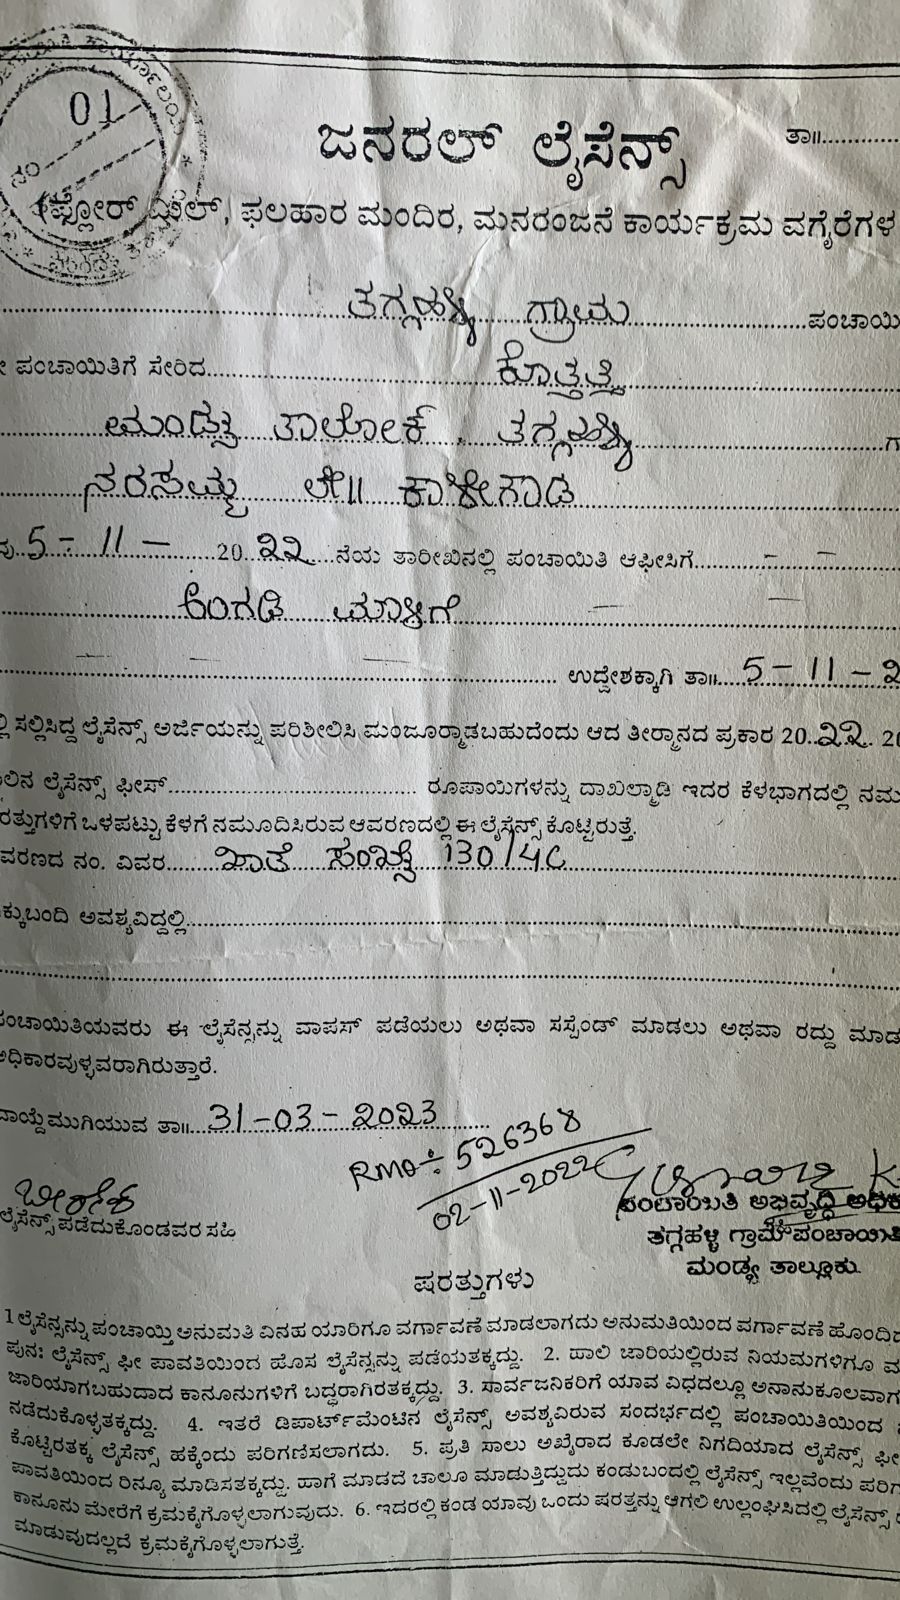 01
ನಂ
ಜನರಲ್ ಲೈಸೆನ್ಸ್ ತಾ॥............
ಫ್ಲೋರ್ ಮಿಲ್, ಫಲಹಾರ ಮಂದಿರ, ಮನರಂಜನೆ ಕಾರ್ಯಕ್ರಮ ವಗೈರೆಗಳ
ತಗ್ಗಹಳ್ಳಿ ಗ್ರಾಮ ಪಂಚಾಯಿ
ಪಂಚಾಯಿತಿಗೆ ಸೇರಿದ ಕೊತ್ತತ್ತಿ
ಮಂಡ್ಯ ತಾಲೋಕ್, ತಗ್ಗಹಳ್ಳಿ
ನರಸಮ್ಮ ಲೇ॥ ಕಾಳೇಗೌಡ
5 - 11 - 2022 ನೆಯ ತಾರೀಖಿನಲ್ಲಿ ಪಂಚಾಯಿತಿ ಆಫೀಸಿಗೆ - -
ಅಂಗಡಿ ಮಳಿಗೆ
ಉದ್ದೇಶಕ್ಕಾಗಿ ತಾ॥ 5 - 11 - 2
ಲ್ಲಿ ಸಲ್ಲಿಸಿದ್ದ ಲೈಸೆನ್ಸ್ ಅರ್ಜಿಯನ್ನು ಪರಿಶೀಲಿಸಿ ಮಂಜೂರ್‍ಮಾಡಬಹುದೆಂದು ಆದ ತೀರ್ಮಾನದ ಪ್ರಕಾರ 2022. 20
ಲಿನ ಲೈಸೆನ್ಸ್ ಫೀಸ್............ ರೂಪಾಯಿಗಳನ್ನು ದಾಖಲ್ಮಾಡಿ ಇದರ ಕೆಳಭಾಗದಲ್ಲಿ ನಮೂ
ರತ್ತುಗಳಿಗೆ ಒಳಪಟ್ಟು ಕೆಳಗೆ ನಮೂದಿಸಿರುವ ಆವರಣದಲ್ಲಿ ಈ ಲೈಸೆನ್ಸ್ ಕೊಟ್ಟಿರುತ್ತೆ.
ವರಣದ ನಂ. ವಿವರ ಖಾತೆ ಸಂಖ್ಯೆ 130/4C
ಕ್ಕುಬಂದಿ ಅವಶ್ಯವಿದ್ದಲ್ಲಿ............
ಪಂಚಾಯಿತಿಯವರು ಈ ಲೈಸೆನ್ಸನ್ನು ವಾಪಸ್ ಪಡೆಯಲು ಅಥವಾ ಸಸ್ಪೆಂಡ್ ಮಾಡಲು ಅಥವಾ ರದ್ದು ಮಾಡ
ಅಧಿಕಾರವುಳ್ಳವರಾಗಿರುತ್ತಾರೆ.
ವಾಯ್ದೆಮುಗಿಯುವ ತಾ॥ 31-03-2023
RMO÷ 526368
02-11-2022
ಲೈಸೆನ್ಸ್ ಪಡೆದುಕೊಂಡವರ ಸಹಿ
ಪಂಚಾಯಿತಿ ಅಭಿವೃದ್ಧಿ ಅಧಿಕ
ತಗ್ಗಹಳ್ಳಿ ಗ್ರಾಮ ಪಂಚಾಯಿತಿ
ಮಂಡ್ಯ ತಾಲ್ಲೂಕು.
ಷರತ್ತುಗಳು
1 ಲೈಸೆನ್ಸನ್ನು ಪಂಚಾಯ್ತಿ ಅನುಮತಿ ವಿನಹ ಯಾರಿಗೂ ವರ್ಗಾವಣೆ ಮಾಡಲಾಗದು ಅನುಮತಿಯಿಂದ ವರ್ಗಾವಣೆ ಹೊಂದಿದ
ಪುನಃ ಲೈಸೆನ್ಸ್ ಫೀ ಪಾವತಿಯಿಂದ ಹೊಸ ಲೈಸೆನ್ಸನ್ನು ಪಡೆಯತಕ್ಕದ್ದು. 2. ಹಾಲಿ ಜಾರಿಯಲ್ಲಿರುವ ನಿಯಮಗಳಿಗೂ
ಜಾರಿಯಾಗಬಹುದಾದ ಕಾನೂನುಗಳಿಗೆ ಬದ್ಧರಾಗಿರತಕ್ಕದ್ದು. 3. ಸಾರ್ವಜನಿಕರಿಗೆ ಯಾವ ವಿಧದಲ್ಲೂ ಅನಾನುಕೂಲವಾಗ
ನಡೆದುಕೊಳ್ಳತಕ್ಕದ್ದು. 4. ಇತರೆ ಡಿಪಾರ್ಟ್‌ಮೆಂಟಿನ ಲೈಸೆನ್ಸ್ ಅವಶ್ಯವಿರುವ ಸಂದರ್ಭದಲ್ಲಿ ಪಂಚಾಯಿತಿಯಿಂದ
ಕೊಟ್ಟಿರತಕ್ಕ ಲೈಸೆನ್ಸ್ ಹಕ್ಕೆಂದು ಪರಿಗಣಿಸಲಾಗದು. 5. ಪ್ರತಿ ಸಾಲು ಅಖೈರಾದ ಕೂಡಲೇ ನಿಗದಿಯಾದ ಲೈಸೆನ್ಸ್ ಫೀ
ಪಾವತಿಯಿಂದ ರಿನ್ಯೂ ಮಾಡಿಸತಕ್ಕದ್ದು. ಹಾಗೆ ಮಾಡದೆ ಚಾಲೂ ಮಾಡುತ್ತಿದ್ದುದು ಕಂಡುಬಂದಲ್ಲಿ ಲೈಸೆನ್ಸ್ ಇಲ್ಲವೆಂದು ಪರಿಗ
ಕಾನೂನು ಮೇರೆಗೆ ಕ್ರಮಕೈಗೊಳ್ಳಲಾಗುವುದು. 6. ಇದರಲ್ಲಿ ಕಂಡ ಯಾವು ಒಂದು ಷರತ್ತನ್ನು ಆಗಲಿ ಉಲ್ಲಂಘಿಸಿದಲ್ಲಿ ಲೈಸೆನ್ಸ್
ಮಾಡುವುದಲ್ಲದೆ ಕ್ರಮಕೈಗೊಳ್ಳಲಾಗುತ್ತೆ.